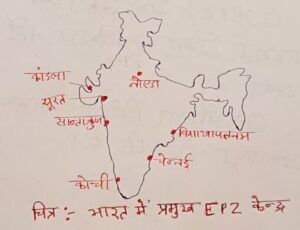 कांडला
नोएडा
सूरत
सान्ताक्रुज
विशाखापत्तनम
चेन्नई
कोच्ची
चित्र :- भारत में प्रमुख EPZ केन्द्र